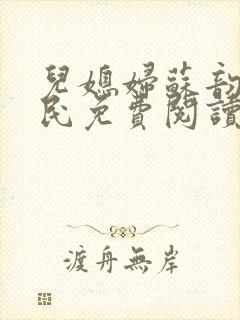 兒媳婦蘇韵
民免費閱讀
渡舟無岸